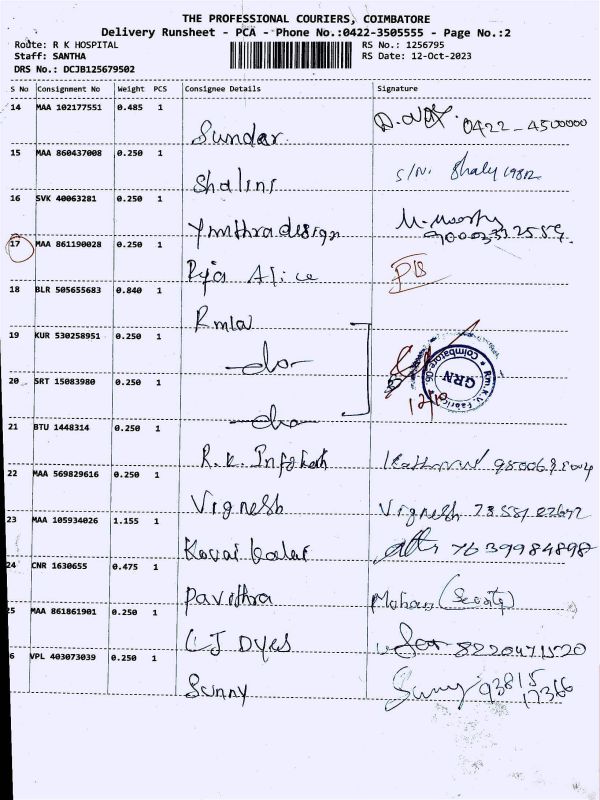 THE PROFESSIONAL COURIERS, COIMBATORE
Delivery Runsheet - PCA - Phone No.:0422-3505555 - Page No.:2
Route: R K HOSPITAL RS No.: 1256795
Staff: SANTHA RS Date: 12-Oct-2023
DRS No.: DCJB125679502
S No Consignment No Weight PCS Consignee Details Signature
14 MAA 102177551 0.485 1
Sundar 0422-4500000
15 MAA 860437008 0.250 1
Shalini S/N.
16 SVK 40063281 0.250 1
Ymthra design M. Moorthy
17 MAA 861190028 0.250 1
Alice
18 BLR 505655683 0.840 1
Rmla
19 KUR 530258951 0.250 1
-do-
20 SRT 15083980 0.250 1
-do-
Rm.K.U. Fabrics
GRN
Coimbatore-06
12/10
21 BTU 1448314 0.250 1
R.K. Infotech
22 MAA 569829616 0.250 1
Vignesh Vignesh
23 MAA 105934026 1.155 1
Kovai kalai 7639984898
24 CNR 1630655 0.475 1
Pavithra Mohan
25 MAA 861861901 0.250 1
CJ Dyes 8220471520
6 VPL 403073039 0.250 1
Sunny Sunny 93815
17366